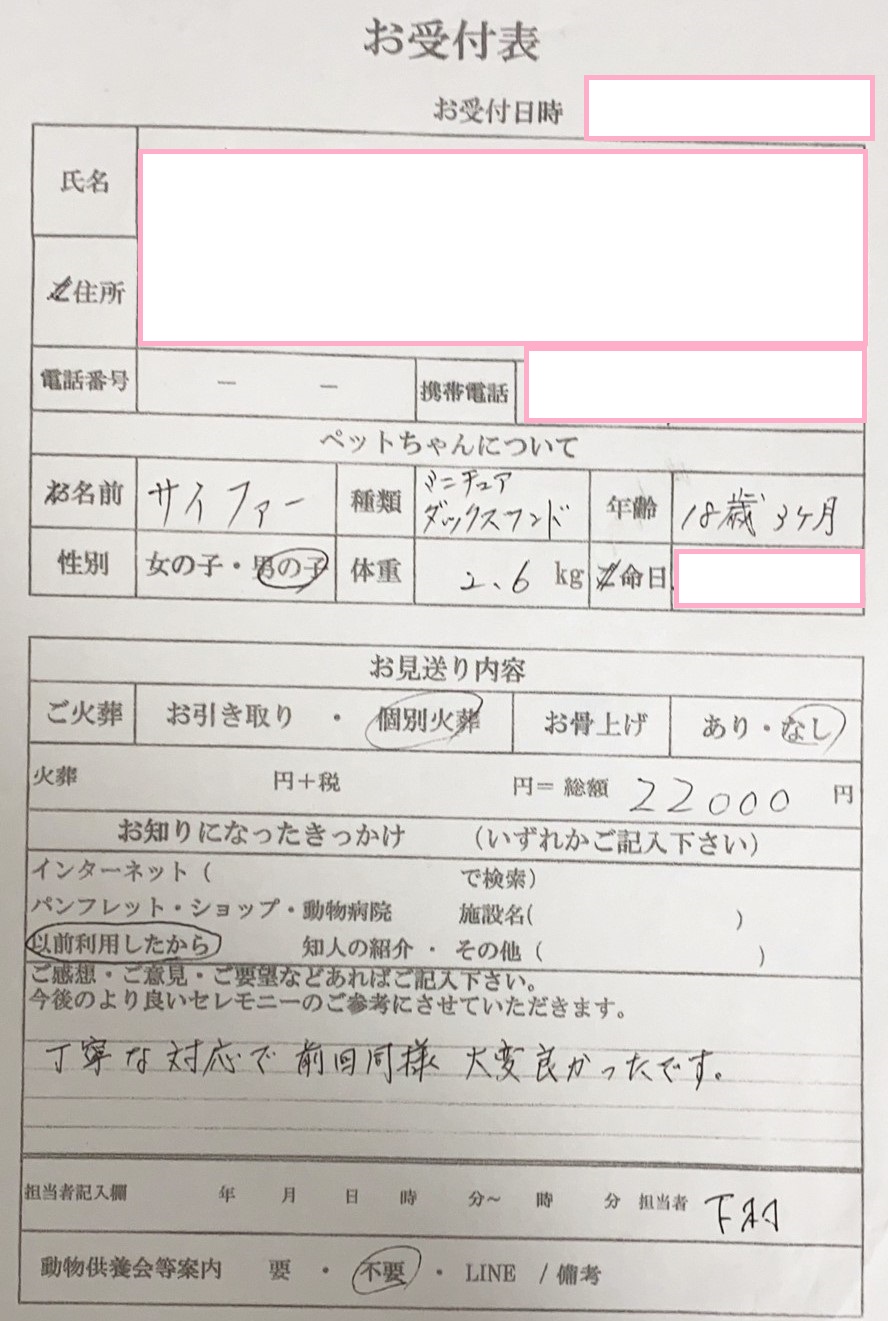 お受付表
お受付日時
氏名
住所
電話番号 － － 携帯電話
ペットちゃんについて
お名前 サイファー 種類 ミニチュア ダックスフンド 年齢 18歳3ヶ月
性別 女の子・男の子 体重 2.6 kg 命日
お見送り内容
ご火葬 お引き取り ・ 個別火葬 お骨上げ あり・なし
火葬 円＋税 円＝ 総額 22000 円
お知りになったきっかけ （いずれかご記入下さい）
インターネット（ で検索）
パンフレット・ショップ・動物病院 施設名( )
以前利用したから 知人の紹介 ・ その他（ ）
ご感想・ご意見・ご要望などあればご記入下さい。
今後のより良いセレモニーのご参考にさせていただきます。
丁寧な対応で前回同様大変良かったです。
担当者記入欄 年 月 日 時 分～ 時 分 担当者 下村
動物供養会等案内 要 ・ 不要 ・ LINE / 備考